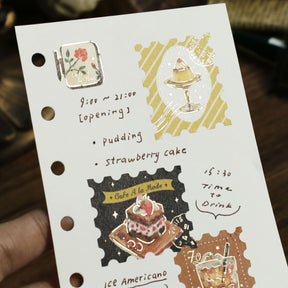 9:00 ~ 21:00
[openings]
• pudding
• strawberry cake
Cafe A la Mode
15:30
Time
to
Drink
ICE Americano